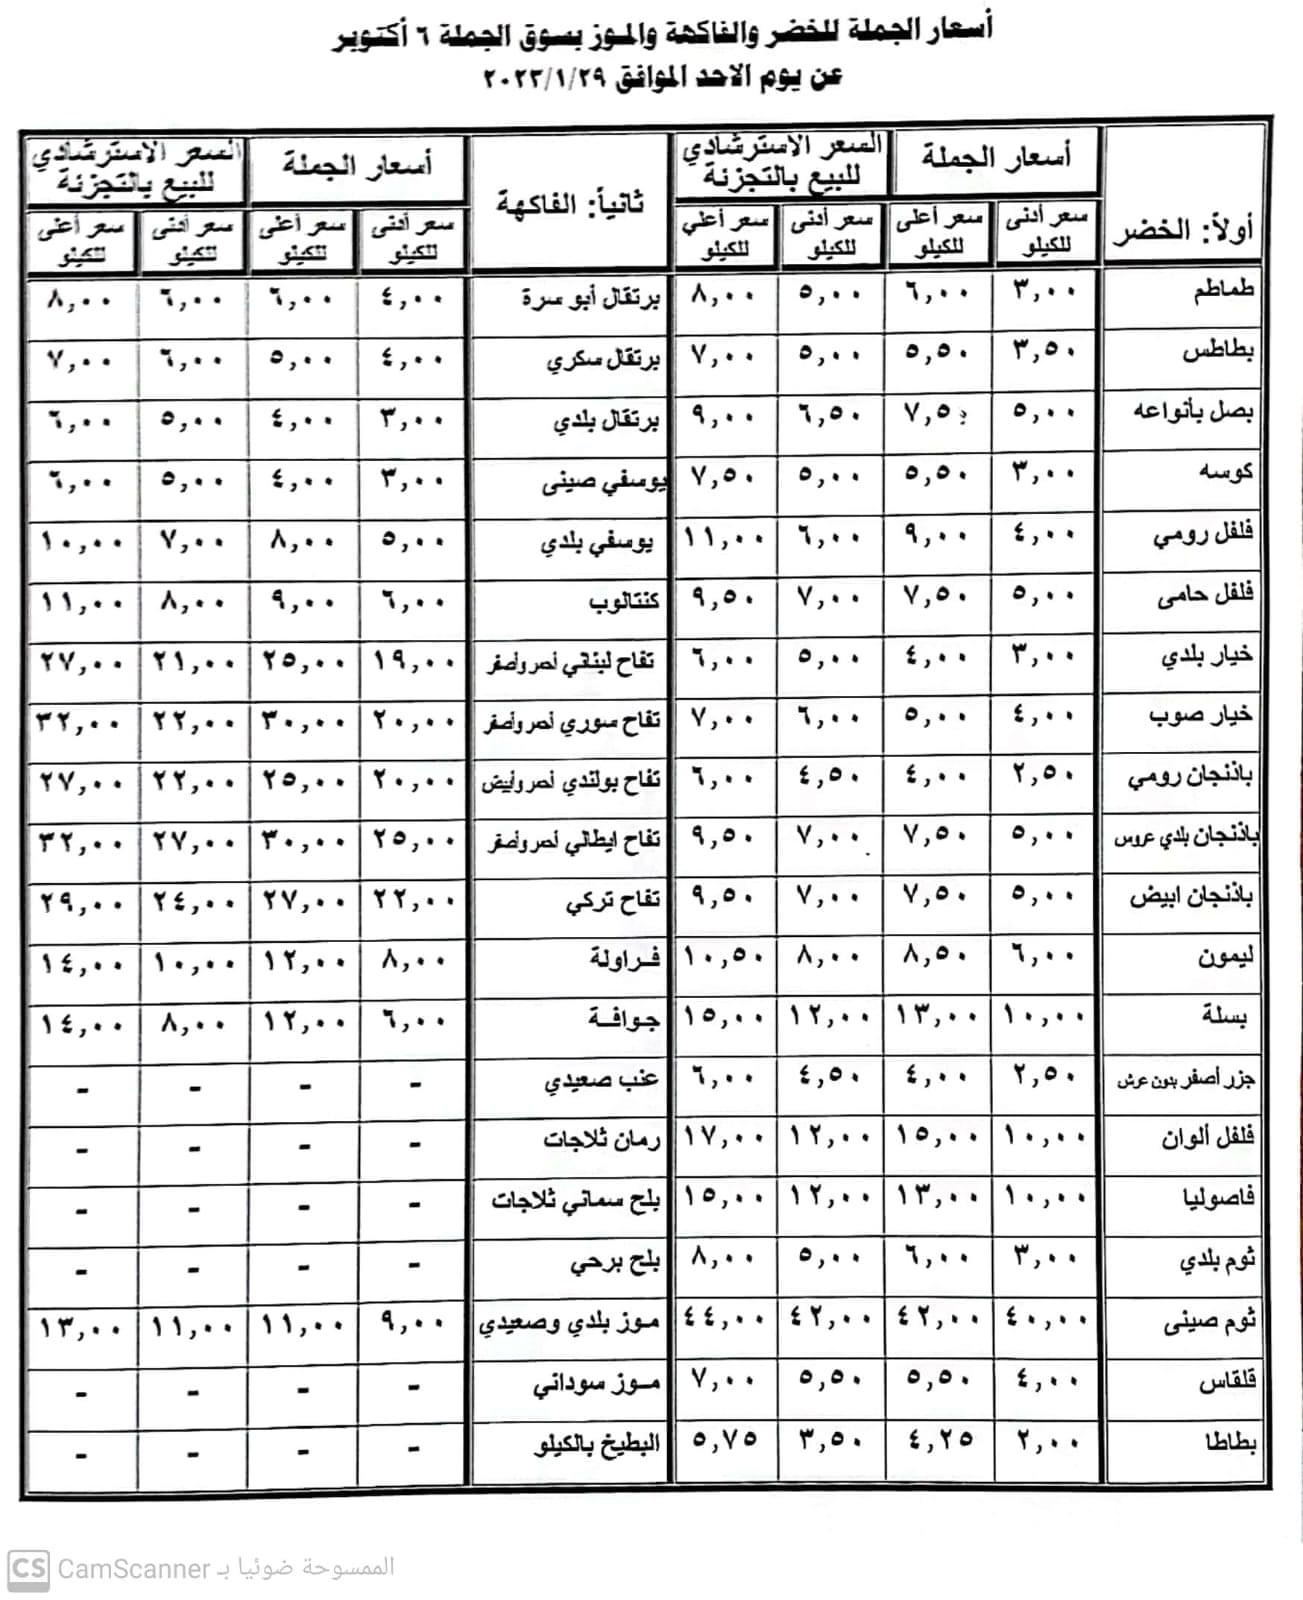 أسعار الجملة للخضر والفاكهة والموز بسوق الجملة ٦ أكتوبر
عن يوم الاحد الموافق ٢٠٢٣/١/٢٩
أولاً: الخضر أسعار الجملة السعر الاسترشادي للبيع بالتجزئة ثانياً: الفاكهة أسعار الجملة السعر الاسترشادي للبيع بالتجزئة
سعر أدنى للكيلو سعر أعلى للكيلو سعر أدنى للكيلو سعر أعلي للكيلو سعر أدنى للكيلو سعر أعلى للكيلو سعر أدنى للكيلو سعر أعلى للكيلو
طماطم ٣,٠٠ ٦,٠٠ ٥,٠٠ ٨,٠٠ برتقال أبو سرة ٤,٠٠ ٦,٠٠ ٦,٠٠ ٨,٠٠
بطاطس ٣,٥٠ ٥,٥٠ ٥,٠٠ ٧,٠٠ برتقال سكري ٤,٠٠ ٥,٠٠ ٦,٠٠ ٧,٠٠
بصل بأنواعه ٥,٠٠ ٧,٥٠ ٦,٥٠ ٩,٠٠ برتقال بلدي ٣,٠٠ ٤,٠٠ ٥,٠٠ ٦,٠٠
كوسه ٣,٠٠ ٥,٥٠ ٥,٠٠ ٧,٥٠ يوسفي صينى ٣,٠٠ ٤,٠٠ ٥,٠٠ ٦,٠٠
فلفل رومي ٤,٠٠ ٩,٠٠ ٦,٠٠ ١١,٠٠ يوسفي بلدي ٥,٠٠ ٨,٠٠ ٧,٠٠ ١٠,٠٠
فلفل حامى ٥,٠٠ ٧,٥٠ ٧,٠٠ ٩,٥٠ كنتالوب ٦,٠٠ ٩,٠٠ ٨,٠٠ ١١,٠٠
خيار بلدي ٣,٠٠ ٤,٠٠ ٥,٠٠ ٦,٠٠ تفاح لبناني أحمر وأصفر ١٩,٠٠ ٢٥,٠٠ ٢١,٠٠ ٢٧,٠٠
خيار صوب ٤,٠٠ ٥,٠٠ ٦,٠٠ ٧,٠٠ تفاح سوري أحمر وأصفر ٢٠,٠٠ ٣٠,٠٠ ٢٢,٠٠ ٣٢,٠٠
باذنجان رومي ٢,٥٠ ٤,٠٠ ٤,٥٠ ٦,٠٠ تفاح بولندي أحمر وأبيض ٢٠,٠٠ ٢٥,٠٠ ٢٢,٠٠ ٢٧,٠٠
باذنجان بلدي عروس ٥,٠٠ ٧,٥٠ ٧,٠٠ ٩,٥٠ تفاح ايطالي أحمر وأصفر ٢٥,٠٠ ٣٠,٠٠ ٢٧,٠٠ ٣٢,٠٠
باذنجان ابيض ٥,٠٠ ٧,٥٠ ٧,٠٠ ٩,٥٠ تفاح تركي ٢٢,٠٠ ٢٧,٠٠ ٢٤,٠٠ ٢٩,٠٠
ليمون ٦,٠٠ ٨,٥٠ ٨,٠٠ ١٠,٥٠ فراولة ٨,٠٠ ١٢,٠٠ ١٠,٠٠ ١٤,٠٠
بسلة ١٠,٠٠ ١٣,٠٠ ١٢,٠٠ ١٥,٠٠ جوافة ٦,٠٠ ١٢,٠٠ ٨,٠٠ ١٤,٠٠
جزر أصفر بدون عرش ٢,٥٠ ٤,٠٠ ٤,٥٠ ٦,٠٠ عنب صعيدي - - - -
فلفل ألوان ١٠,٠٠ ١٥,٠٠ ١٢,٠٠ ١٧,٠٠ رمان ثلاجات - - - -
فاصوليا ١٠,٠٠ ١٣,٠٠ ١٢,٠٠ ١٥,٠٠ بلح سماني ثلاجات - - - -
ثوم بلدي ٣,٠٠ ٦,٠٠ ٥,٠٠ ٨,٠٠ بلح برحي - - - -
ثوم صينى ٤٠,٠٠ ٤٢,٠٠ ٤٢,٠٠ ٤٤,٠٠ موز بلدي وصعيدي ٩,٠٠ ١١,٠٠ ١١,٠٠ ١٣,٠٠
قلقاس ٤,٠٠ ٥,٥٠ ٥,٥٠ ٧,٠٠ موز سوداني - - - -
بطاطا ٢,٠٠ ٤,٢٥ ٣,٥٠ ٥,٧٥ البطيخ بالكيلو - - - -
CS CamScanner الممسوحة ضوئيا بـ